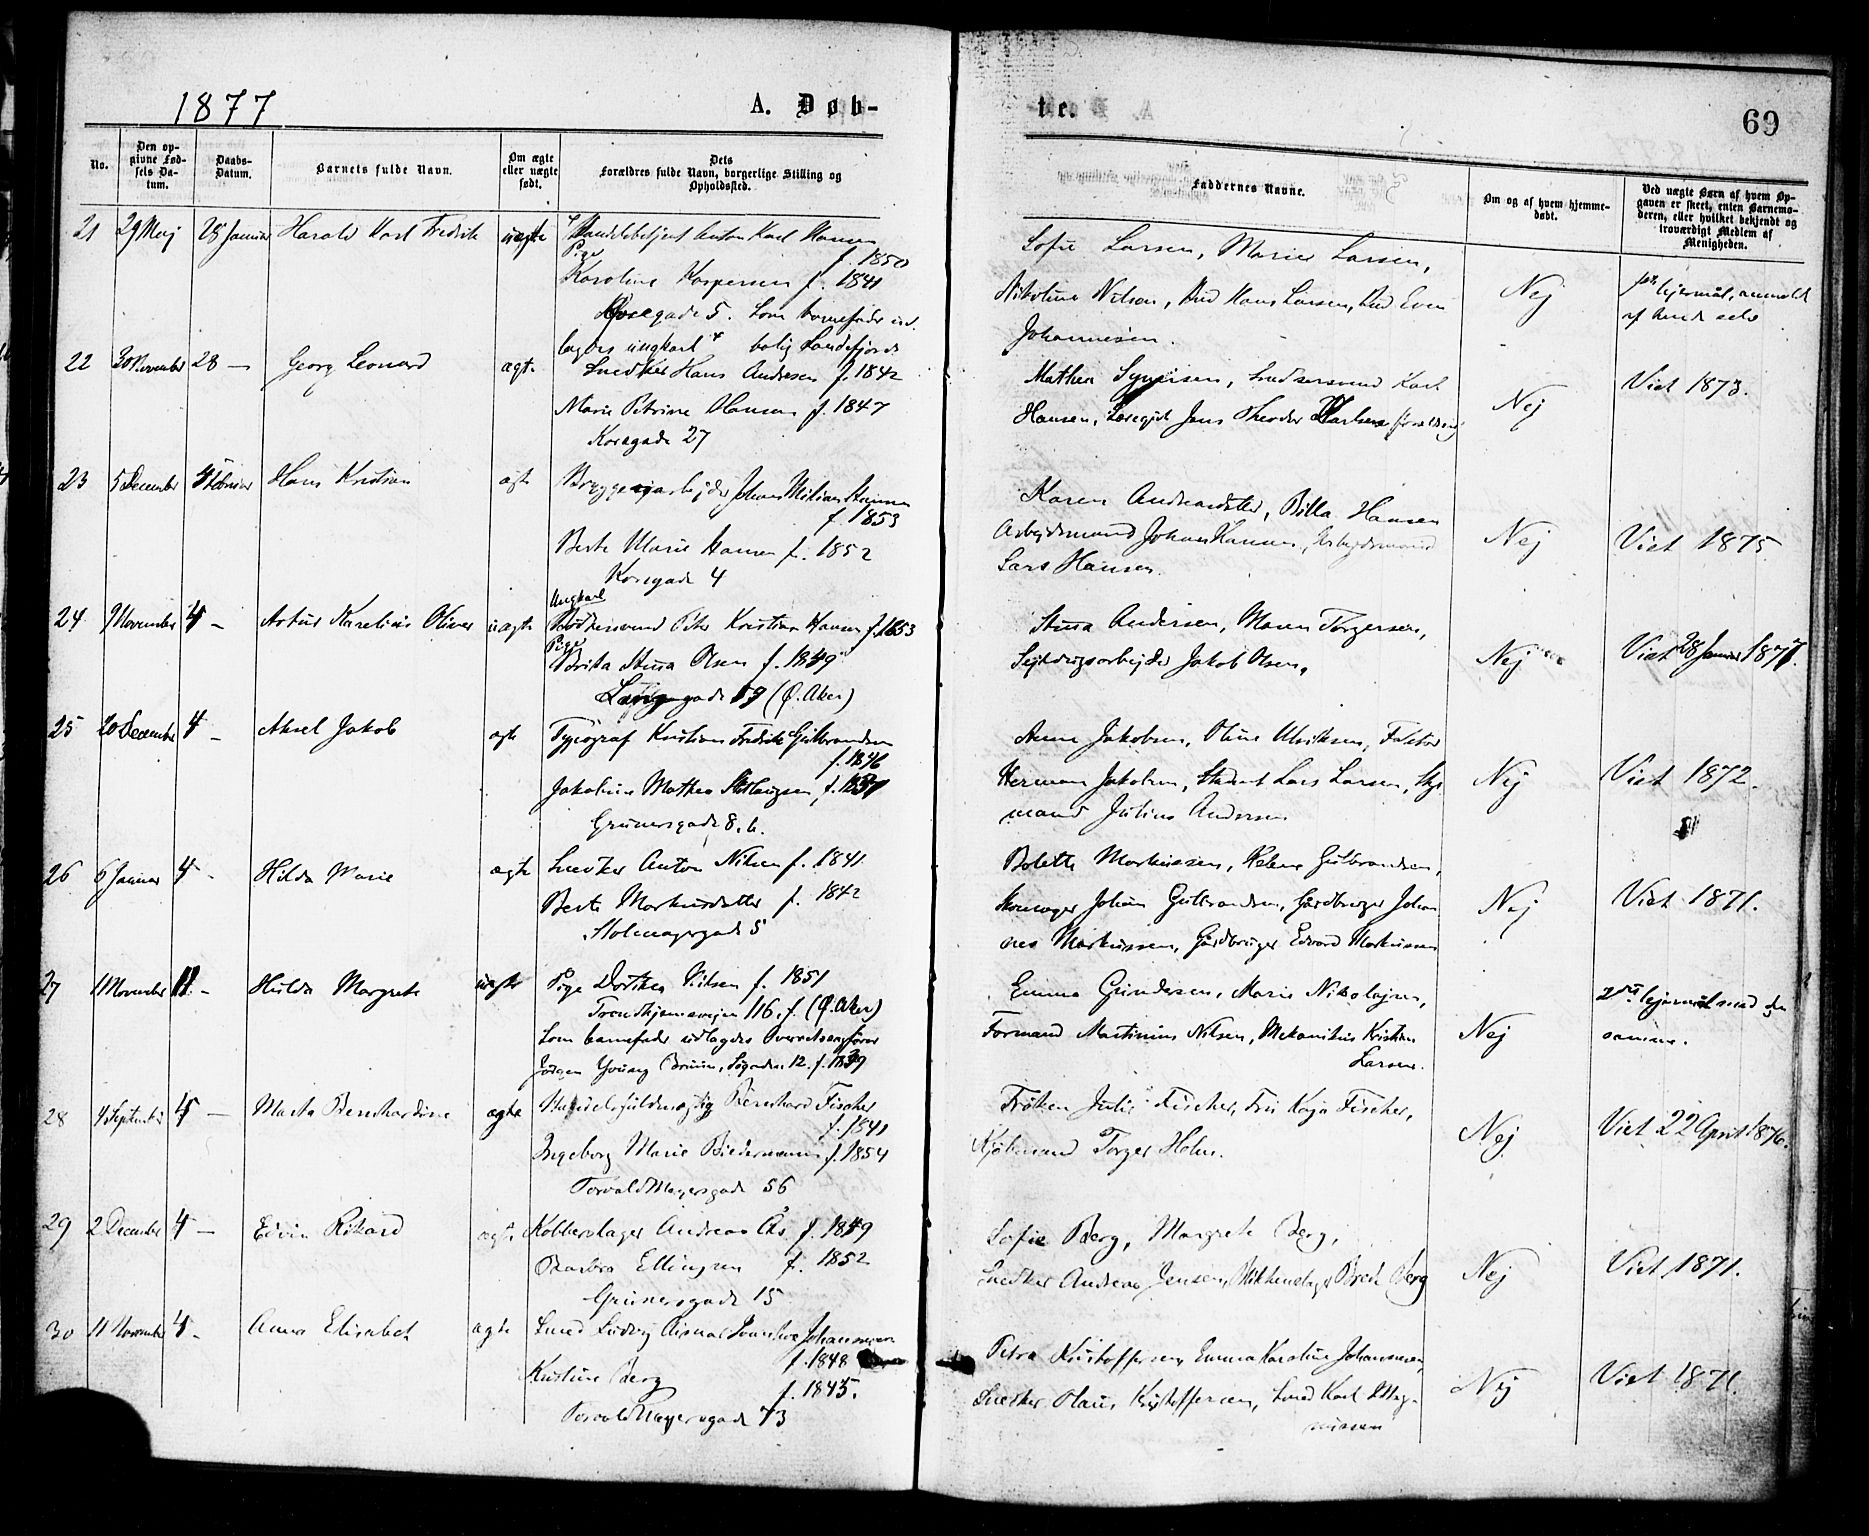 1877
A. Døb-
te.
69
No.
Den op-
givne Fød-
sels Da-
tum.
Daabs-
Datum.
Barnets fulde Navn.
Om ægte
eller uægte
født.
Dets
Forældres fulde Navn, borgerlige Stilling og
Opholdssted.
Faddernes Navne.
Om og af hvem hjemme-
døbt.
Ved uægte Børn af hvem Op-
gaven er skeet, enten Barnemo-
deren, eller hvilket bekjendt og
troværdigt Medlem af
Menigheden.
21 29 Maj 28 Januar Harald Karl Fredrik uægte Handelsbetjent Anton Karl Hansen
f. 1850
Pige
Karoline Kaspersen f. 1841
Korsgade 5. Som barnefader ud-
lagdes ungkarl bolig Sandefjord
Sofie Larsen, Marie Larsen,
Nikoline Nilsen, Hans Larsen, Even
Johannesen.
Nej
lejermål, anmeldt
af hende selv
22 30 November 28 — Georg Leonard ægte Snedker Hans Andresen f. 1842
Marie Petrine Hansen f. 1847
Korsgade 27
Mathea Syversen, Snedkersvend Karl
Hansen, Jens Theodor Karlsen
Nej
Viet 1873.
23 5 December 4 Februar Hans Kristian ægte Bryggeriarbejder Johan Hansen
f. 1853
Berte Marie Hansen f. 1852
Korsgade 4
Karen Andreasdatter, Hansen
Arbejdsmand Johan Hansen, Arbejdsmand
Lars Hansen.
Nej
Viet 1875
24 9 November 4 — Artur Karelius Oliver uægte Ungkarl
Bødkersvend Peter Kristian Hansen f. 1853
Pige
Brita Stusa Olsen f. 1849
Langgade 19 (Ø. Aker)
Stusa Andersen, Maren Torgersen,
Sejldugsarbejder Jakob Olsen,
Nej
Viet 28 Januar 1877.
25 20 December 4 — Aksel Jakob ægte Typograf Kristian Fredrik Gulbrandsen
f. 1846
Jakobine Mathea
Grünersgade 8.b.
Anne Jakobsen, Oline Ulriksen, Faktor
Herman Jakobsen, Student Lars Larsen, Sty-
mand Julius Andersen
Nej
Viet 1872.
26 6 Januar 4 — Hilda Marie ægte Snedker Anton Nilsen f. 1841
Berte Markusdatter f. 1842
Stolmagergade 5
Bolette Markussen, Helene Gulbrandsen,
Skomager Johan Gulbrandsen, Gårdbruger Johan-
nes Markussen, Gårdbruger Edvard Markussen
Nej
Viet 1871.
27 11 November 11 — Hulda Margrete uægte Pige Dorthea Nilsen f. 1851
Trondhjemsvejen 116. f. (Ø. Aker)
Som barnefader udlagdes Overretssagfører
Jørgen Young Bruun, Søgaden 12. f. 1839
Emma Gundersen, Marie Nikolajsen,
Formand Martinius Nilsen, Mekanikus Kristian
Larsen.
Nej
2det lejermål med den
samme.
28 4 September 4 — Marta Bernhardine ægte Handelsfuldmægtig Bernhard Fischer
f. 1841
Ingeborg Marie Biedermann f. 1854
Torvald Meyersgade 56
Frøken Julie Fischer, Fru Kaja Fischer,
Kjøbmand Torger Holm.
Nej
Viet 22 April 1876.
29 2 December 4 — Edvin Rikard ægte Kobberslager Andreas Ås f. 1849
Barbra Ellingsen f. 1852
Grünersgade 15
Sofie Berg, Margrete Berg,
Snedker Andreas Jensen, Berg
Nej
Viet 1871.
30 11 November 4 — Anna Elisabet ægte Smed Ludvig Johannesen
f. 1848
Kristine Berg
f. 1845.
Torvald Meyersgade 73
Petra Kristoffersen, Emma Karoline Johannesen,
Snedker Olaus Kristoffersen, Smed Karl Mag-
nussen
Nej
Viet 1871.